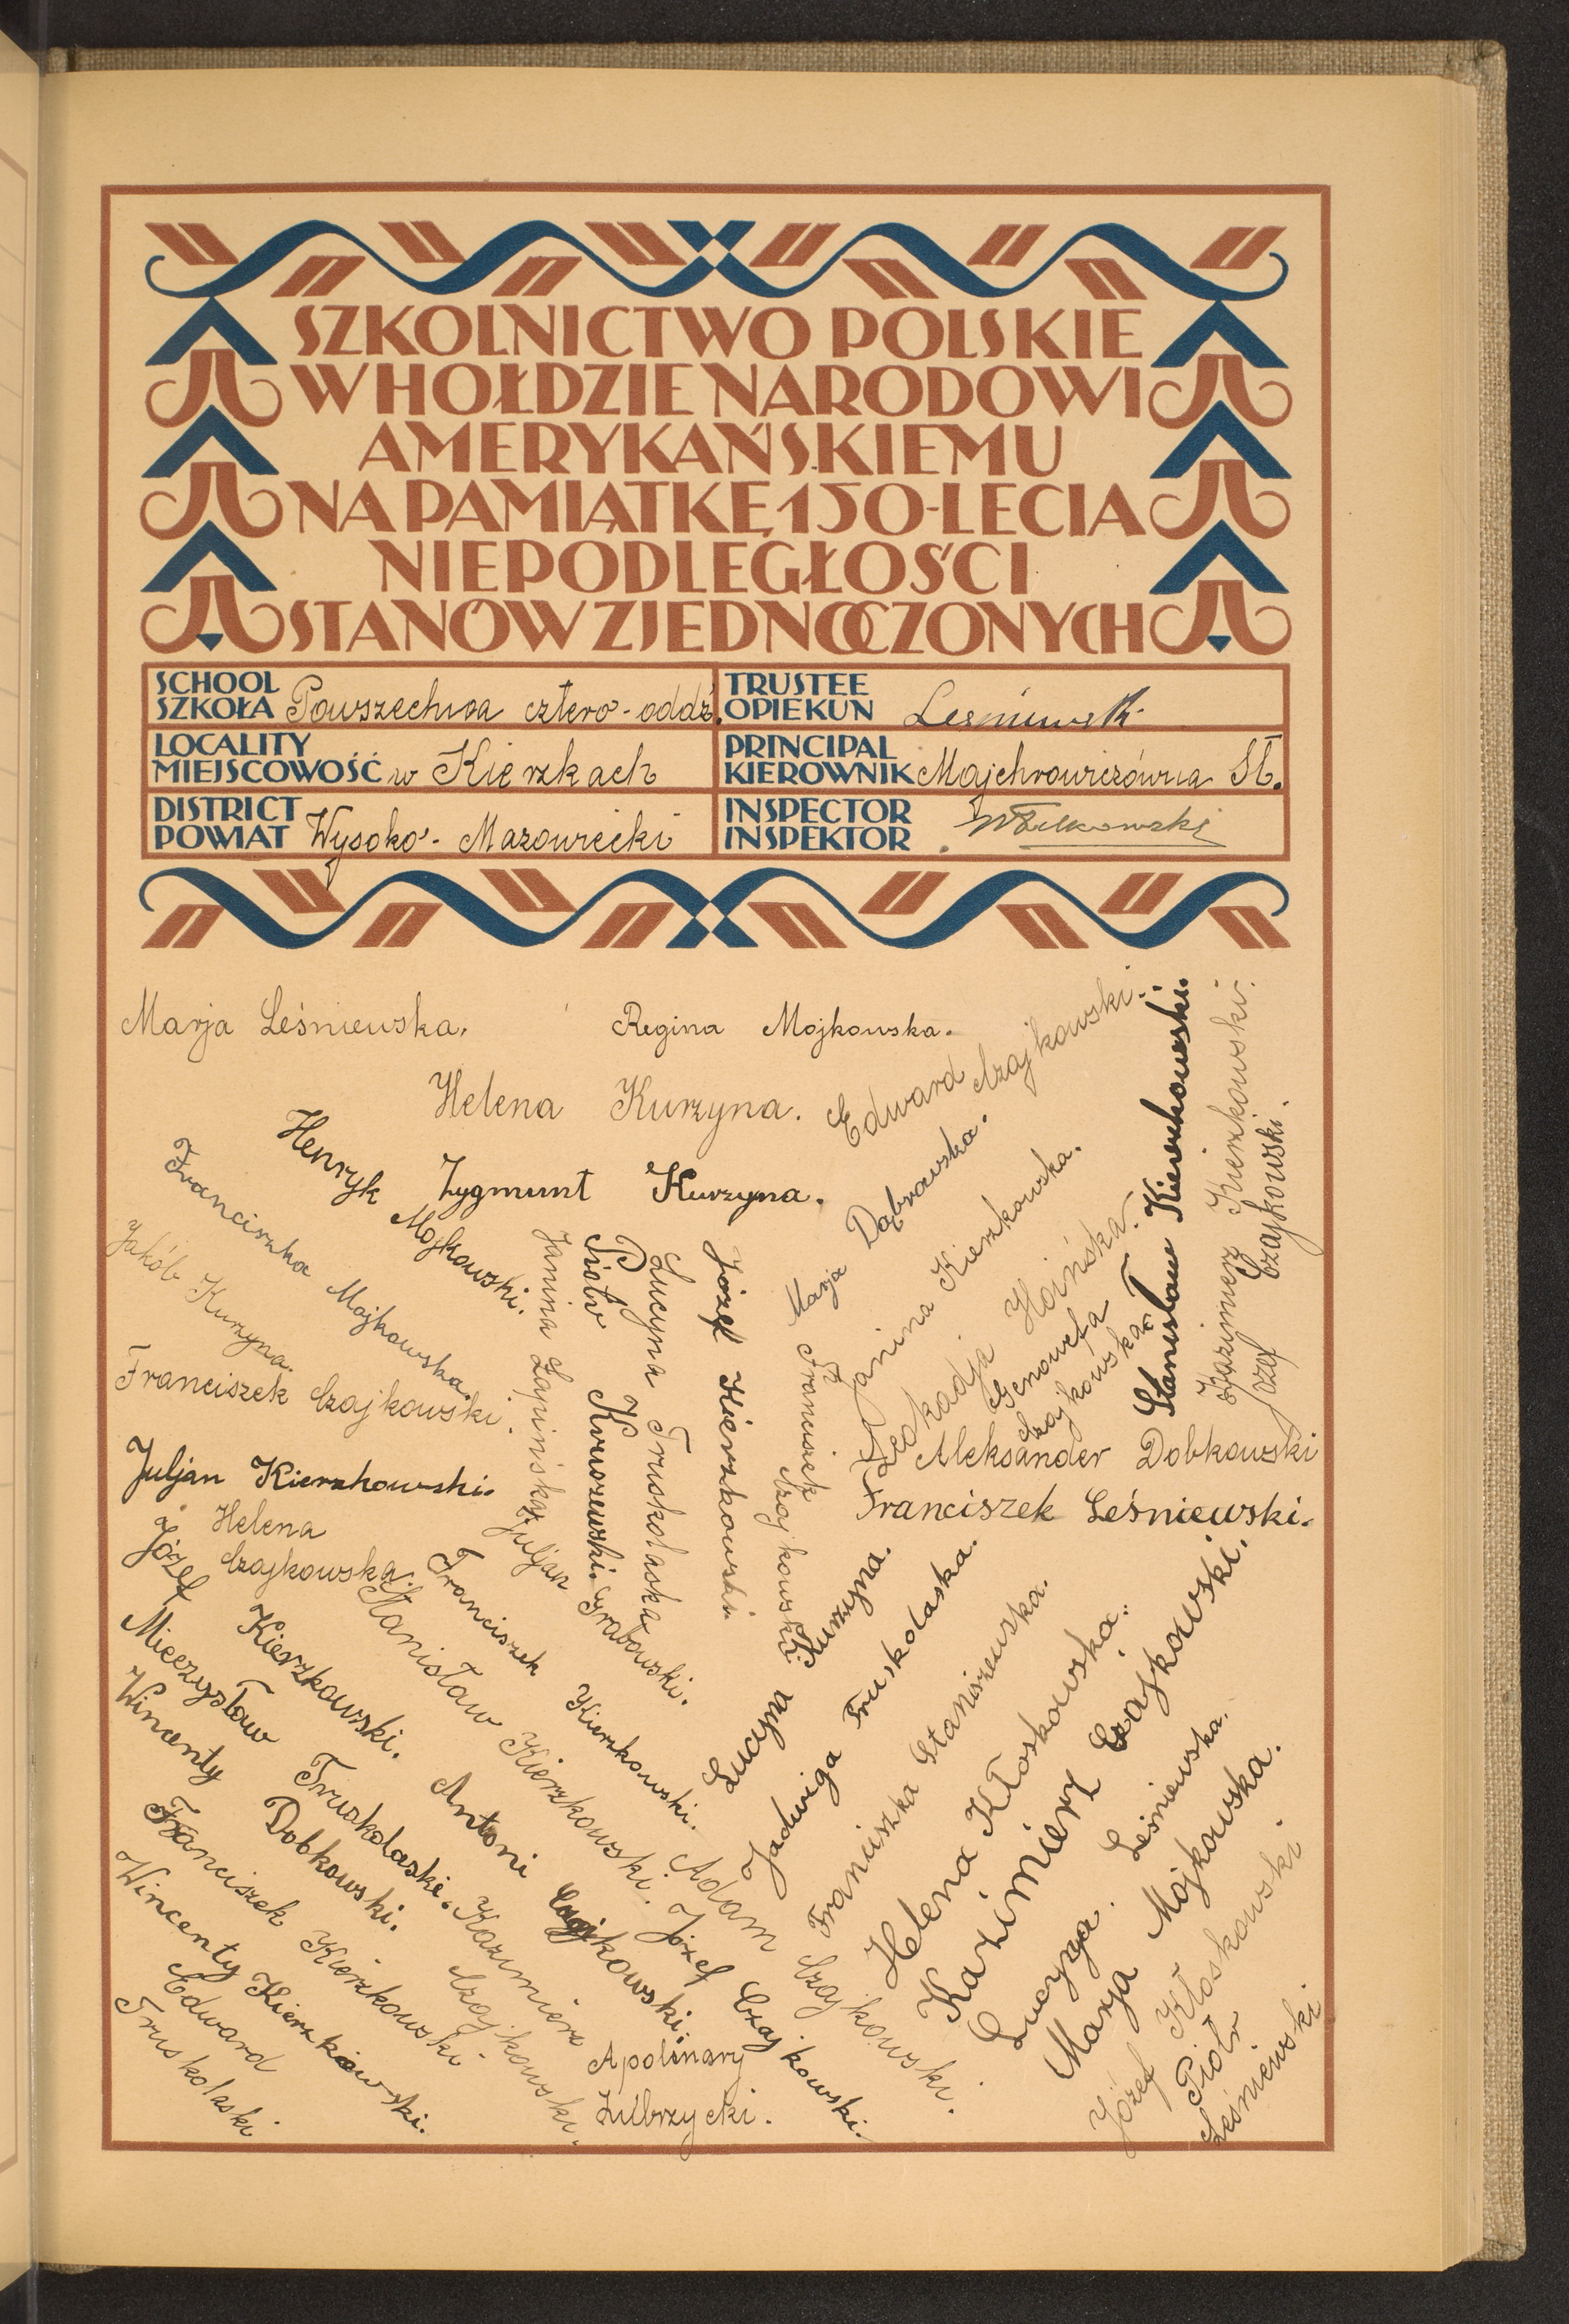 SZKOLNICTWO POLSKIE
W HOŁDZIE NARODOWI
AMERYKAŃSKIEMU
NA PAMIĄTKĘ 150-LECIA
NIEPODLEGŁOŚCI
STANÓW ZJEDNOCZONYCH
SCHOOL
SZKOŁA Powszechna cztero-oddz.
TRUSTEE
OPIEKUN Leśniewski
LOCALITY
MIEJSCOWOŚĆ w Kierzkach
PRINCIPAL
KIEROWNIK Majchrowiczówna St.
DISTRICT
POWIAT Wysoko-Mazowiecki
INSPECTOR
INSPEKTOR
Marja Leśniewska.
Regina Mojkowska.
Helena Kurzyna.
Edward Czajkowski.
Henryk Mojkowski.
Zygmunt Kurzyna.
Marja Dąbrowska.
Janina Kierzkowska.
Leokadja Hoińska.
Genowefa
Czajkowska.
Stanisław Kierzkowski.
Kazimierz Kierzkowski.
Józef Czajkowski.
Franciszka Mojkowska.
Jakób Kurzyna.
Franciszek Czajkowski.
Janina Łapińska
Piotr Kruszewski.
Lucyna Truskolaska
Józef Kierzkowski.
Franciszek Czajkowski.
Aleksander Dobkowski
Franciszek Leśniewski.
Juljan Kierzkowski.
Helena
Czajkowska.
Juljan Grabowski.
Józef Kierzkowski.
Franciszek Kierzkowski.
Stanisław Kierzkowski.
Mieczysław Truskolaski.
Wincenty Dobkowski.
Antoni Czajkowski.
Adam Czajkowski.
Józef Czajkowski.
Kazimierz Czajkowski.
Franciszek Kierzkowski
Wincenty Kierzkowski.
Edward
Truskolaski
Apolinary
Zubrzycki.
Lucyna Kurzyna.
Jadwiga Truskolaska.
Franciszka Staniszewska.
Helena Kłoskowska.
Kazimierz Czajkowski.
Lucyna Leśniewska.
Marja Mojkowska.
Józef Kłoskowski
Piotr
Leśniewski